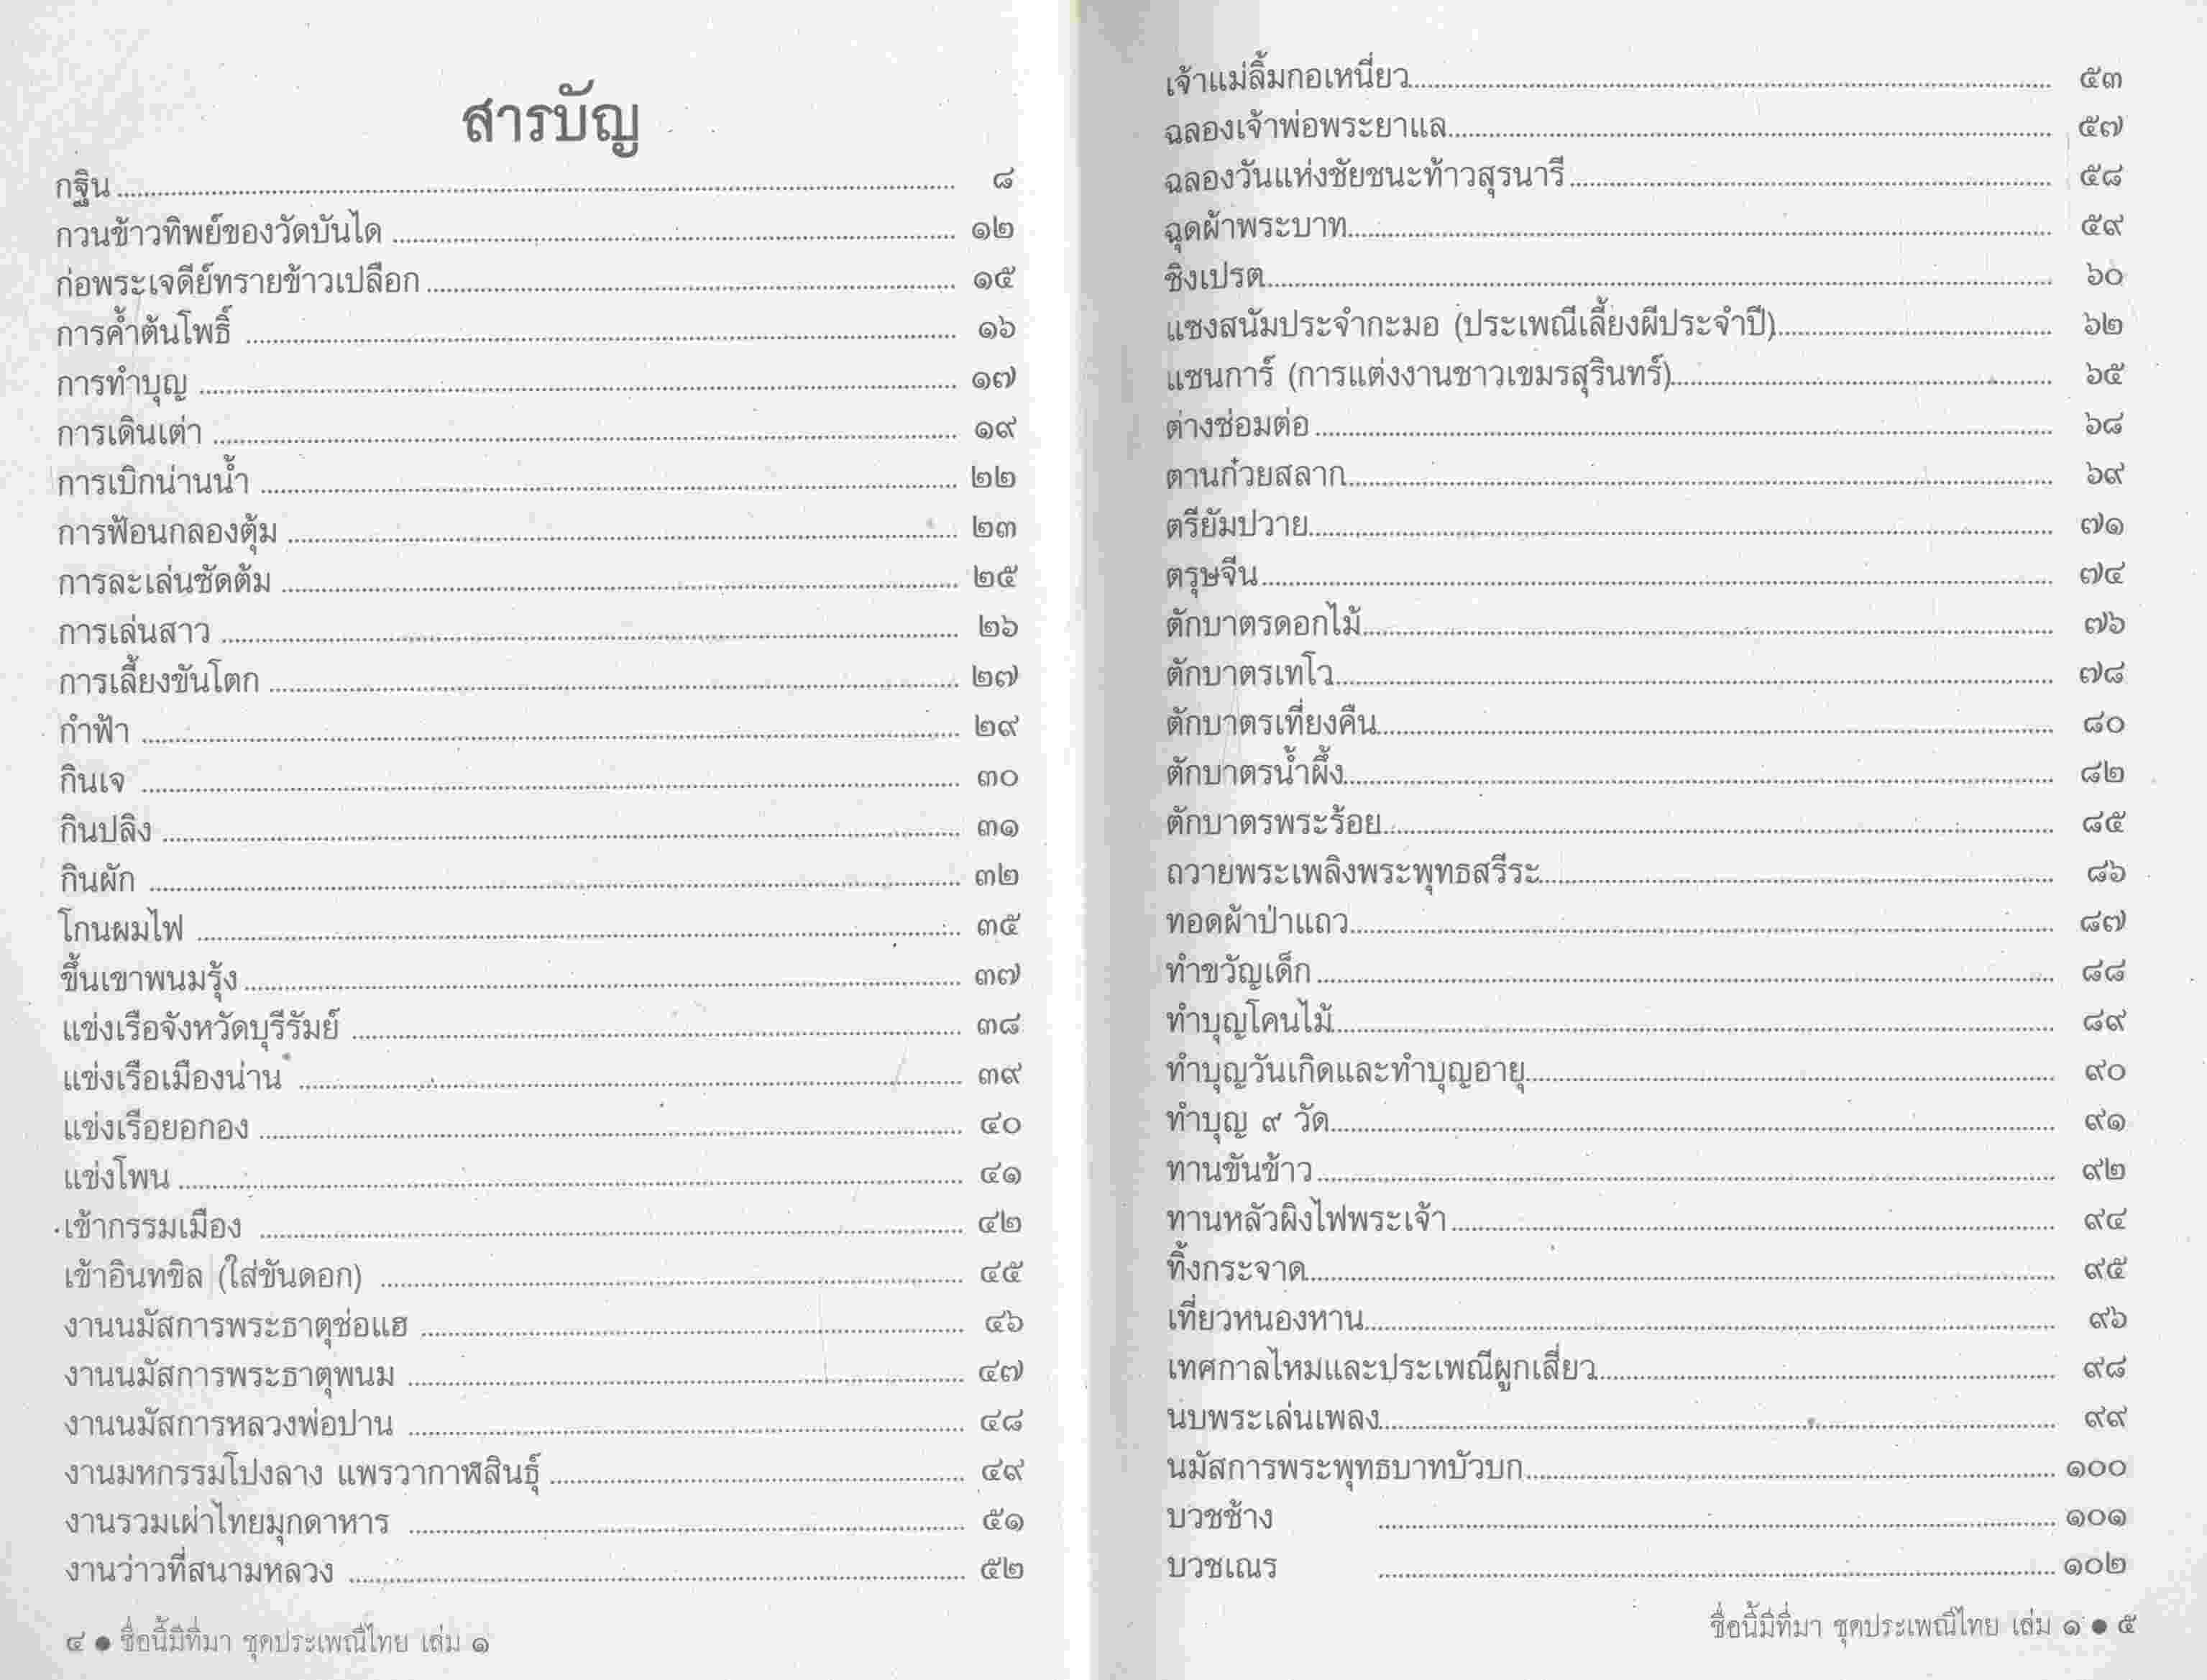 สารบัญ
กฐิน ........ ๘
กวนข้าวทิพย์ของวัดบันได ........ ๑๒
ก่อพระเจดีย์ทรายข้าวเปลือก ........ ๑๕
การค้ำต้นโพธิ์ ........ ๑๖
การทำบุญ ........ ๑๗
การเดินเต่า ........ ๑๙
การเบิกน่านน้ำ ........ ๒๒
การฟ้อนกลองตุ้ม ........ ๒๓
การละเล่นซัดต้ม ........ ๒๕
การเล่นสาว ........ ๒๖
การเลี้ยงขันโตก ........ ๒๗
กำฟ้า ........ ๒๙
กินเจ ........ ๓๐
กินปลิง ........ ๓๑
กินผัก ........ ๓๒
โกนผมไฟ ........ ๓๕
ขึ้นเขาพนมรุ้ง ........ ๓๗
แข่งเรือจังหวัดบุรีรัมย์ ........ ๓๘
แข่งเรือเมืองน่าน ........ ๓๙
แข่งเรือยอกอง ........ ๔๐
แข่งโพน ........ ๔๑
เข้ากรรมเมือง ........ ๔๒
เข้าอินทขิล (ใส่ขันดอก) ........ ๔๕
งานนมัสการพระธาตุช่อแฮ ........ ๔๖
งานนมัสการพระธาตุพนม ........ ๔๗
งานนมัสการหลวงพ่อปาน ........ ๔๘
งานมหกรรมโปงลาง แพรวากาฬสินธุ์ ........ ๔๙
งานรวมเผ่าไทยมุกดาหาร ........ ๕๑
งานว่าวที่สนามหลวง ........ ๕๒
๔ ● ชื่อนี้มีที่มา ชุดประเพณีไทย เล่ม ๑
เจ้าแม่ลิ้มกอเหนี่ยว ........ ๕๓
ฉลองเจ้าพ่อพระยาแล ........ ๕๗
ฉลองวันแห่งชัยชนะท้าวสุรนารี ........ ๕๘
ฉุดผ้าพระบาท ........ ๕๙
ชิงเปรต ........ ๖๐
แซงสนัมประจำกะมอ (ประเพณีเลี้ยงผีประจำปี) ........ ๖๒
แซนการ์ (การแต่งงานชาวเขมรสุรินทร์) ........ ๖๕
ต่างซ่อมต่อ ........ ๖๘
ตานก๋วยสลาก ........ ๖๙
ตรียัมปวาย ........ ๗๑
ตรุษจีน ........ ๗๔
ตักบาตรดอกไม้ ........ ๗๖
ตักบาตรเทโว ........ ๗๘
ตักบาตรเที่ยงคืน ........ ๘๐
ตักบาตรน้ำผึ้ง ........ ๘๒
ตักบาตรพระร้อย ........ ๘๕
ถวายพระเพลิงพระพุทธสรีระ ........ ๘๖
ทอดผ้าป่าแถว ........ ๘๗
ทำขวัญเด็ก ........ ๘๘
ทำบุญโคนไม้ ........ ๘๙
ทำบุญวันเกิดและทำบุญอายุ ........ ๙๐
ทำบุญ ๙ วัด ........ ๙๑
ทานขันข้าว ........ ๙๒
ทานหลัวผิงไฟพระเจ้า ........ ๙๔
ทิ้งกระจาด ........ ๙๕
เที่ยวหนองหาน ........ ๙๖
เทศกาลไหมและประเพณีผูกเสี่ยว ........ ๙๘
นบพระเล่นเพลง ........ ๙๙
นมัสการพระพุทธบาทบัวบก ........ ๑๐๐
บวชช้าง ........ ๑๐๑
บวชเณร ........ ๑๐๒
ชื่อนี้มีที่มา ชุดประเพณีไทย เล่ม ๑ ● ๕